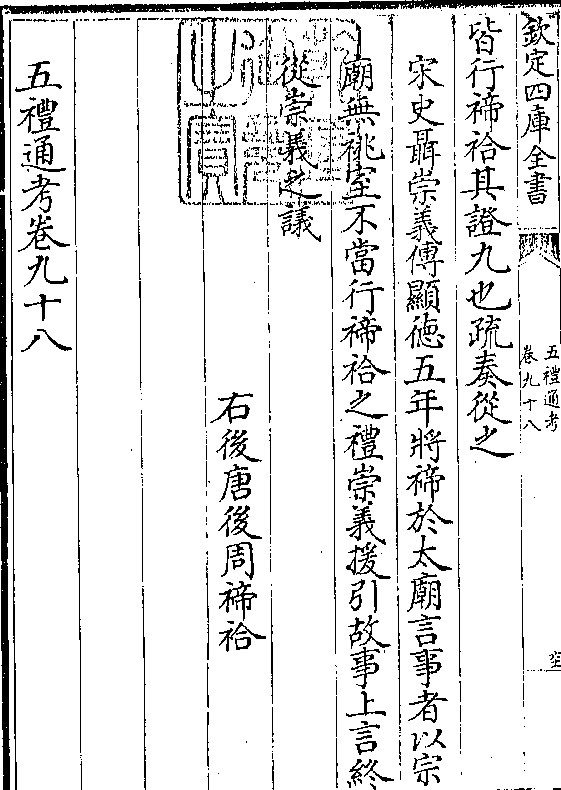 欽定四庫全書
五禮通考
卷九十八
皆行禘祫其證九也疏奏從之
宋史聶崇義傳顯徳五年將禘於太廟言事者以宗
廟無祧室不當行禘祫之禮崇義援引故事上言終
從崇義之議
右後唐後周禘祫
五禮通考卷九十八